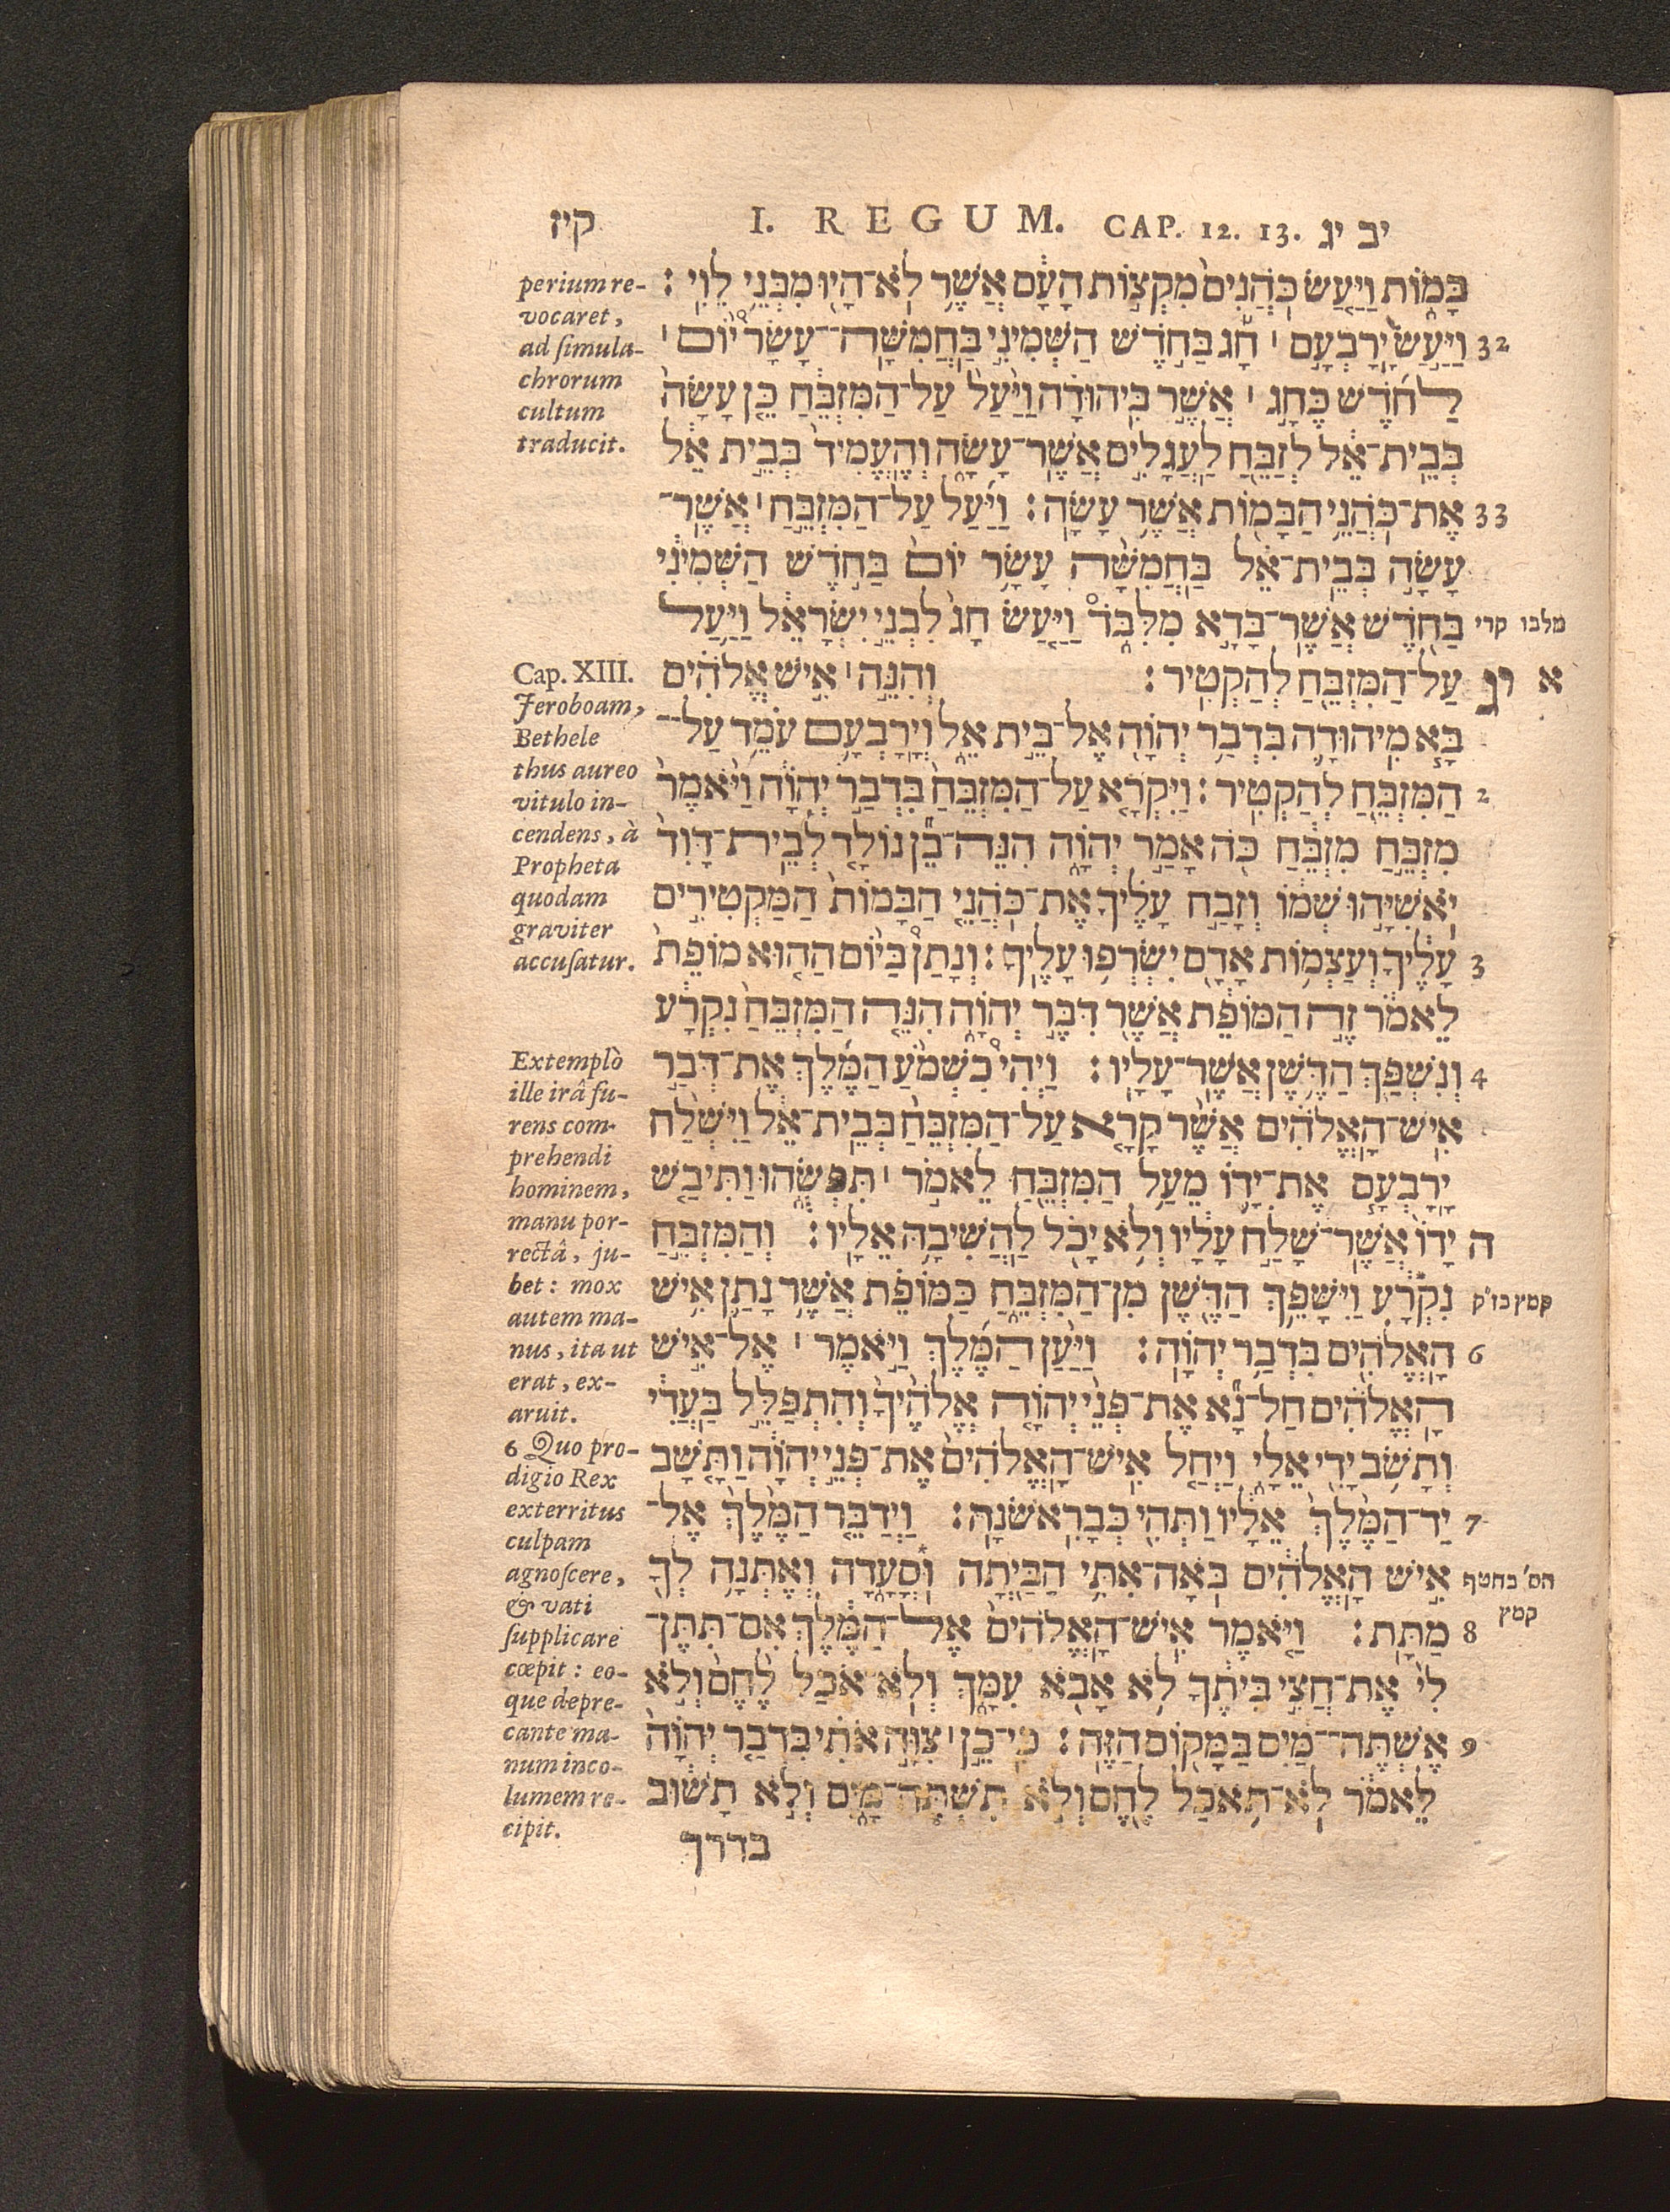 קיז I. REGUM. CAP. 12. 13. יב יג
בָּמ֑וֹת וַיַּ֤עַשׂ כֹּֽהֲנִים֙ מִקְצ֣וֹת הָעָ֔ם אֲשֶׁ֥ר לֹֽא־הָי֖וּ מִבְּנֵ֥י לֵוִֽי׃
32 וַיַּ֣עַשׂ יָֽרָבְעָ֣ם ׀ חָ֡ג בַּחֹ֣דֶשׁ הַשְּׁמִינִ֣י בַּֽחֲמִשָּֽׁה־עָשָׂר֩ י֨וֹם ׀
לַחֹ֜דֶשׁ כֶּחָ֣ג ׀ אֲשֶׁ֣ר בִּֽיהוּדָ֗ה וַיַּ֨עַל֙ עַל־הַמִּזְבֵּ֔חַ כֵּ֤ן עָשָׂה֙
בְּבֵֽית־אֵ֔ל לְזַבֵּ֖חַ לָֽעֲגָלִ֣ים אֲשֶׁר־עָשָׂ֑ה וְהֶֽעֱמִיד֙ בְּבֵ֣ית אֵ֔ל
33 אֶת־כֹּֽהֲנֵ֥י הַבָּמ֖וֹת אֲשֶׁ֥ר עָשָֽׂה׃ וַיַּ֜עַל עַל־הַמִּזְבֵּ֣חַ ׀ אֲשֶׁר־
עָשָׂ֣ה בְּבֵֽית־אֵ֗ל בַּֽחֲמִשָּׁ֨ה עָשָׂ֥ר יוֹם֙ בַּחֹ֣דֶשׁ הַשְּׁמִינִ֔י
בַּחֹ֖דֶשׁ אֲשֶׁר־בָּדָ֣א מִלִּבֹּ֑ד וַיַּ֤עַשׂ חָג֙ לִבְנֵ֣י יִשְׂרָאֵ֔ל וַיַּ֥עַל
מלבו קרי
א יג עַל־הַמִּזְבֵּ֖חַ לְהַקְטִֽיר׃ וְהִנֵּ֣ה ׀ אִ֣ישׁ אֱלֹהִ֗ים
בָּ֧א מִֽיהוּדָ֛ה בִּדְבַ֥ר יְהוָ֖ה אֶל־בֵּ֣ית אֵ֑ל וְיָֽרָבְעָ֛ם עֹמֵ֥ד עַל־
2 הַמִּזְבֵּ֖חַ לְהַקְטִֽיר׃ וַיִּקְרָ֤א עַל־הַמִּזְבֵּ֨חַ֙ בִּדְבַ֣ר יְהוָ֔ה וַיֹּ֨אמֶר֙
מִזְבֵּ֣חַ מִזְבֵּ֔חַ כֹּ֖ה אָמַ֣ר יְהוָ֑ה הִנֵּֽה־בֵ֞ן נוֹלָ֤ד לְבֵֽית־דָּוִד֙
יֹֽאשִׁיָּ֣הוּ שְׁמ֔וֹ וְזָבַ֣ח עָלֶ֗יךָ אֶת־כֹּֽהֲנֵ֤י הַבָּמוֹת֙ הַמַּקְטִירִ֣ים
3 עָלֶ֔יךָ וְעַצְמ֥וֹת אָדָ֖ם יִשְׂרְפ֥וּ עָלֶֽיךָ׃ וְנָתַן֩ בַּיּ֨וֹם הַה֤וּא מוֹפֵת֙
לֵאמֹ֔ר זֶ֣ה הַמּוֹפֵ֔ת אֲשֶׁ֖ר דִּבֶּ֣ר יְהוָ֑ה הִנֵּ֤ה הַמִּזְבֵּ֨חַ֙ נִקְרָ֔ע
4 וְנִשְׁפַּ֖ךְ הַדֶּ֥שֶׁן אֲשֶׁר־עָלָֽיו׃ וַיְהִי֩ כִשְׁמֹ֨עַ הַמֶּ֜לֶךְ אֶת־דְּבַ֣ר
אִישׁ־הָֽאֱלֹהִ֗ים אֲשֶׁ֨ר קָרָ֤א עַל־הַמִּזְבֵּ֨חַ֙ בְּבֵֽית־אֵ֔ל וַיִּשְׁלַ֨ח
יָֽרָבְעָ֧ם אֶת־יָד֛וֹ מֵעַ֥ל הַמִּזְבֵּ֖חַ לֵאמֹ֣ר ׀ תִּפְשֻׂ֑הוּ וַתִּיבַ֤שׁ
ה יָדוֹ֙ אֲשֶׁר־שָׁלַ֣ח עָלָ֔יו וְלֹ֥א יָכֹ֖ל לַֽהֲשִׁיבָ֥הּ אֵלָֽיו׃ וְהַמִּזְבֵּ֣חַ
נִקְרָ֔ע וַיִּשָּׁפֵ֥ךְ הַדֶּ֖שֶׁן מִן־הַמִּזְבֵּ֑חַ כַּמּוֹפֵ֕ת אֲשֶׁ֥ר נָתַ֛ן אִ֥ישׁ
קמץ בז״ק
6 הָֽאֱלֹהִ֖ים בִּדְבַ֥ר יְהוָֽה׃ וַיַּ֨עַן הַמֶּ֜לֶךְ וַיֹּ֣אמֶר ׀ אֶל־אִ֣ישׁ
הָֽאֱלֹהִ֗ים חַל־נָ֞א אֶת־פְּנֵ֨י יְהוָ֤ה אֱלֹהֶ֨יךָ֙ וְהִתְפַּלֵּ֣ל בַּֽעֲדִ֔י
וְתָשֹׁ֥ב יָדִ֖י אֵלָ֑י וַיְחַ֤ל אִישׁ־הָֽאֱלֹהִים֙ אֶת־פְּנֵ֣י יְהוָ֔ה וַתָּ֤שָׁב
7 יַד־הַמֶּ֨לֶךְ֙ אֵלָ֔יו וַתְּהִ֖י כְּבָרִֽאשֹׁנָֽה׃ וַיְדַבֵּ֤ר הַמֶּ֨לֶךְ֙ אֶל־
אִ֣ישׁ הָֽאֱלֹהִ֔ים בֹּֽאָה־אִתִּ֥י הַבַּ֖יְתָה וּֽסְעָ֑דָה וְאֶתְּנָ֥ה לְךָ֖
הס׳ בחטף
קמץ
8 מַתָּֽת׃ וַיֹּ֤אמֶר אִישׁ־הָֽאֱלֹהִים֙ אֶל־הַמֶּ֔לֶךְ אִם־תִּתֶּן־
לִי֙ אֶת־חֲצִ֣י בֵיתֶ֔ךָ לֹ֥א אָבֹ֖א עִמָּ֑ךְ וְלֹֽא־אֹ֤כַל לֶ֨חֶם֙ וְלֹ֣א
9 אֶשְׁתֶּה־מַּ֔יִם בַּמָּק֖וֹם הַזֶּֽה׃ כִּי־כֵ֣ן ׀ צִוָּ֣ה אֹתִ֗י בִּדְבַ֤ר יְהוָֹה֙
לֵאמֹ֔ר לֹא־תֹ֥אכַל לֶ֖חֶם וְלֹ֣א תִשְׁתֶּה־מָּ֑יִם וְלֹ֣א תָשׁ֔וּב
בדרך
perium re-
vocaret,
ad simula-
chrorum
cultum
traducit.
Cap. XIII.
Jeroboam,
Bethele
thus aureo
vitulo in-
cendens, à
Propheta
quodam
graviter
accusatur.
Extemplò
ille irâ fu-
rens com-
prehendi
hominem,
manu por-
rectâ, ju-
bet: mox
autem ma-
nus, ita ut
erat, ex-
aruit.
6 Quo pro-
digio Rex
exterritus
culpam
agnoscere,
& vati
supplicare
cœpit: eo-
que depre-
cante ma-
num inco-
lumem re-
cipit.